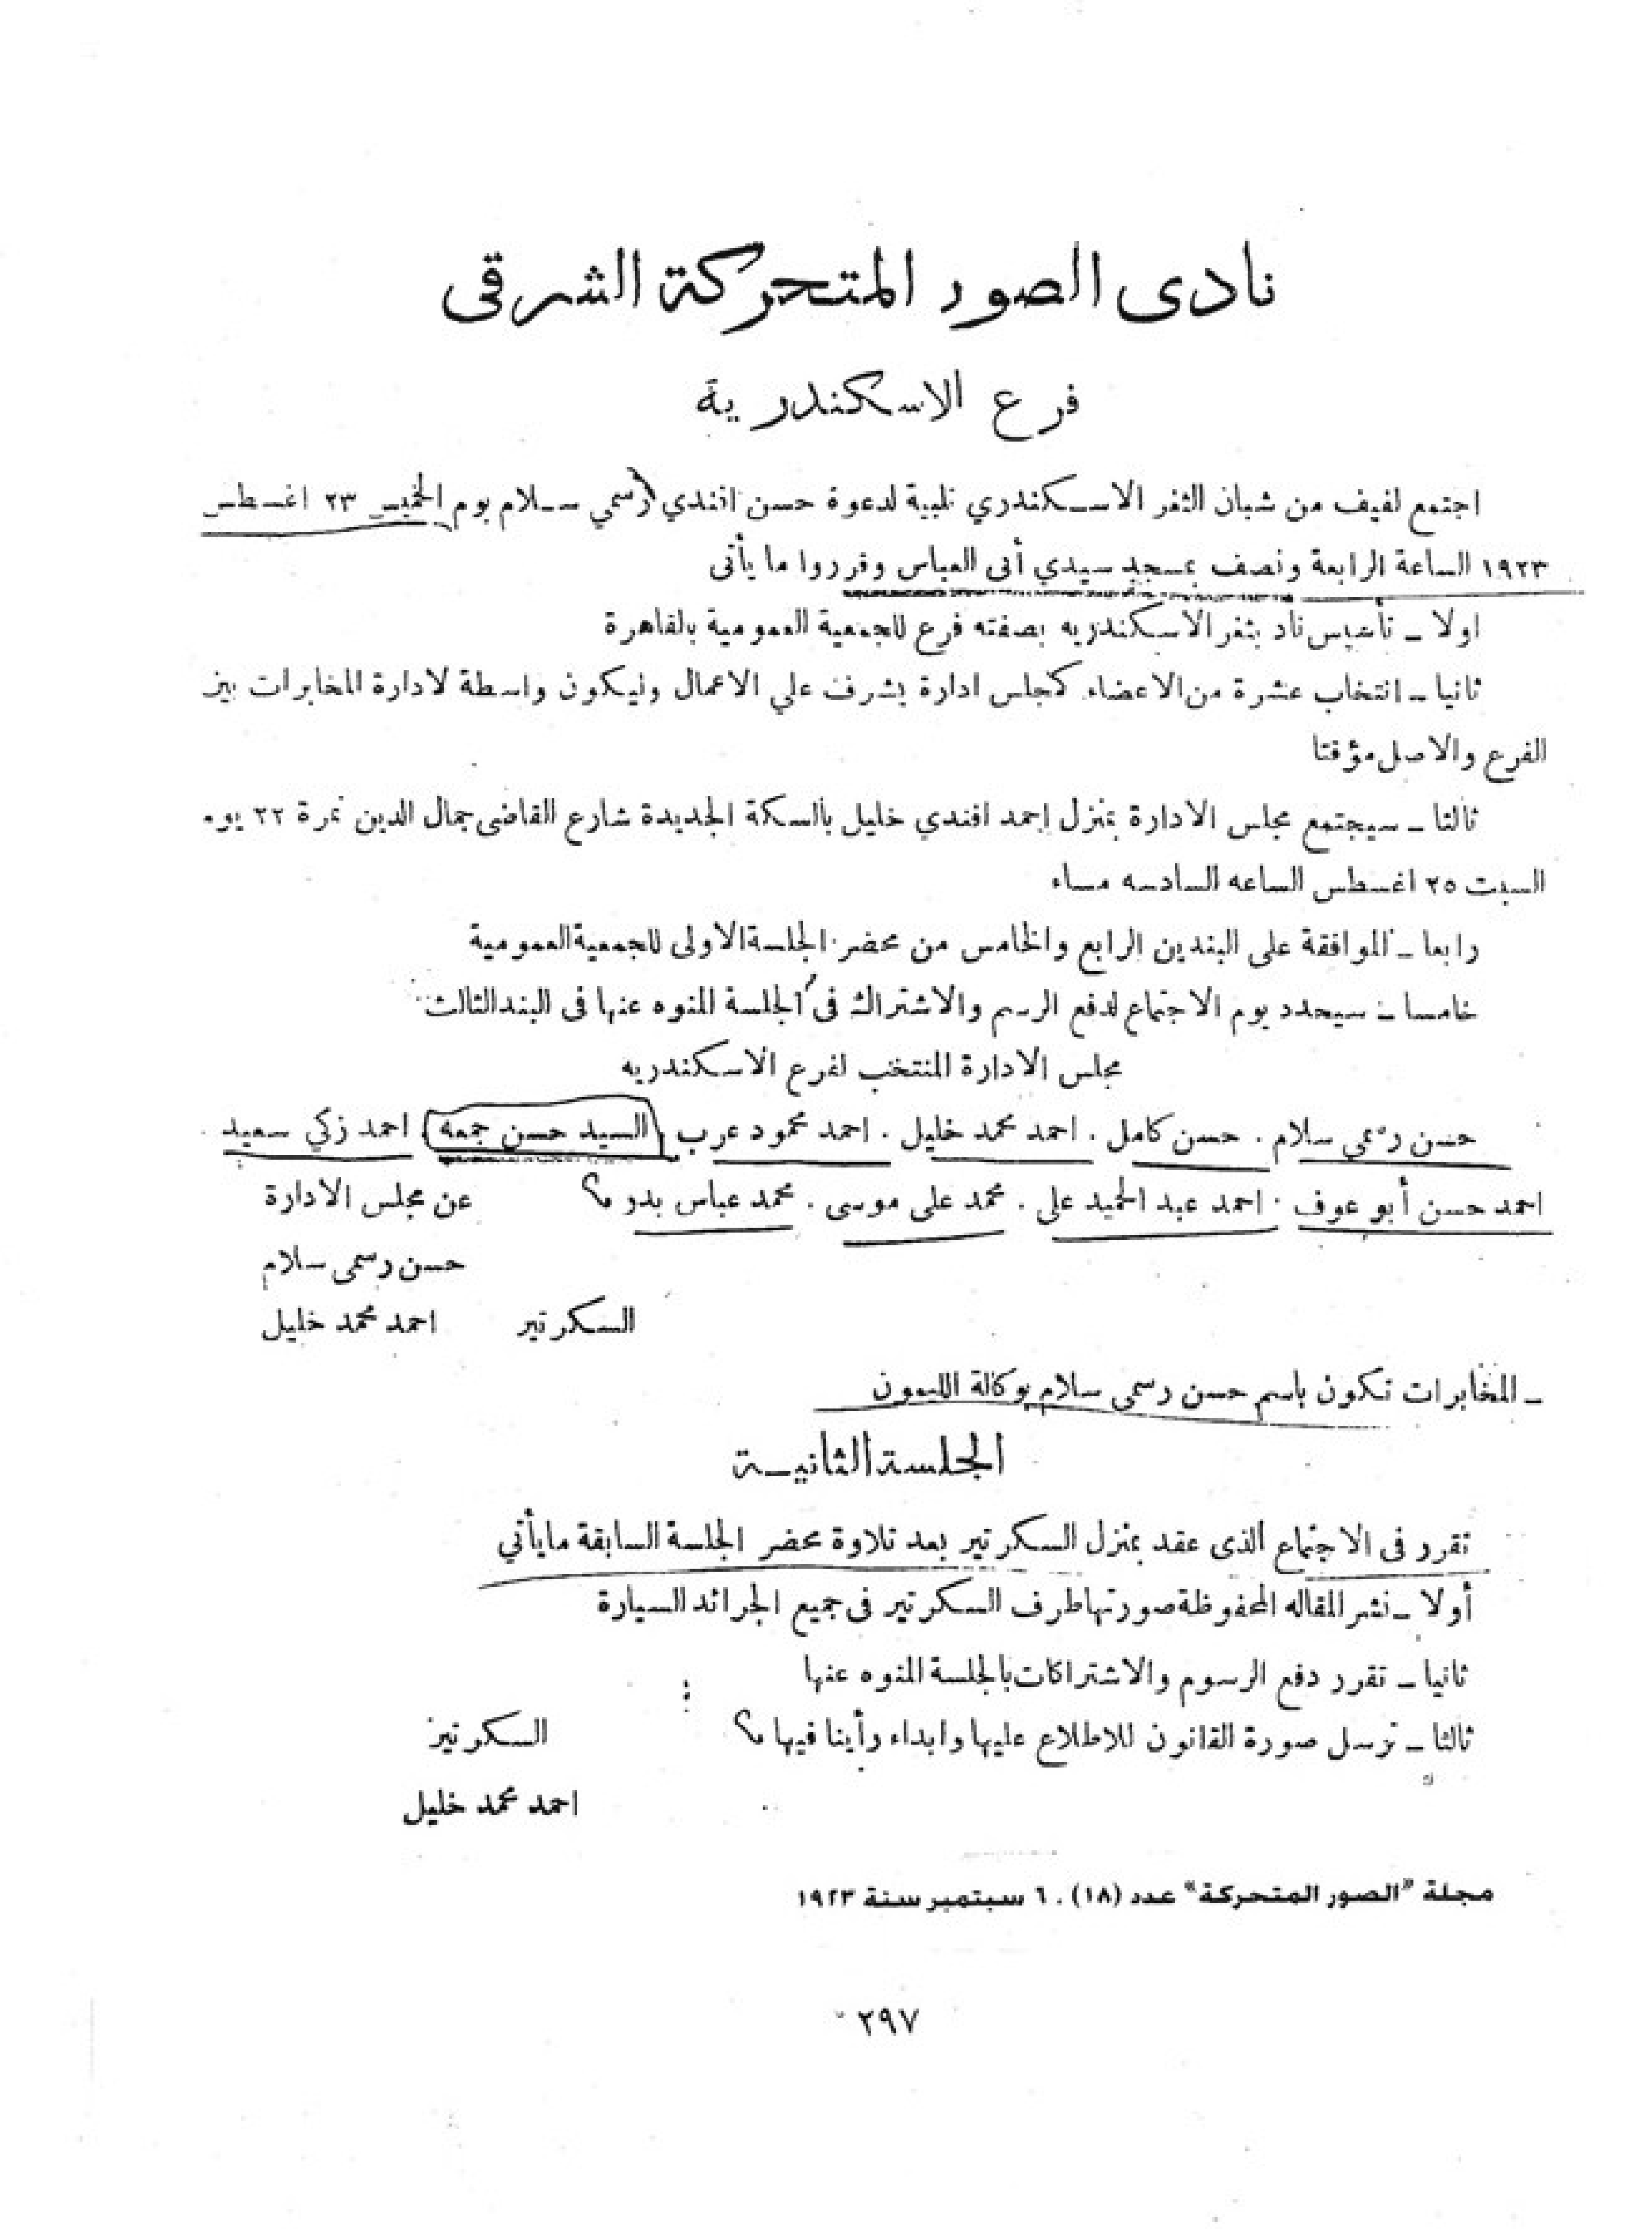 نادى الصور المتحركة الشرقى
فرع الاسكندرية
اجتمع لفيف من شبان الثغر الاسكندري تلبية لدعوة حسن افندي (رسمي سلام يوم الخميس ٢٣ اغسطس
١٩٢٣ الساعة الرابعة ونصف بمسجد سيدي أبى العباس وقرروا ما يأتى
اولا ـ تأسيس ناد بثغر الاسكندريه بصفته فرع للجمعية العمومية بالقاهرة
ثانيا ـ انتخاب عشرة من الاعضاء كمجلس ادارة يشرف علي الاعمال وليكون واسطة لادارة المخابرات بين
الفرع والاصل مؤقتا
ثالثا ـ سيجتمع مجلس الادارة بمنزل احمد افندي خليل بالسكة الجديدة شارع القاضى جمال الدين نمرة ٢٢ يوم
السبت ٢٥ اغسطس الساعه السادسه مساء
رابعا ـ الموافقة على البندين الرابع والخامس من محضر الجلسة الاولى للجمعية العمومية
خامسا ـ سيحدد يوم الاجتماع لدفع الرسم والاشتراك فى الجلسة المنوه عنها فى البند الثالث
مجلس الادارة المنتخب لفرع الاسكندريه
حسن رسمى سلام . حسن كامل . احمد محمد خليل . احمد محمود عرب . السيد حسن جمعه . احمد زكي سعيد .
احمد حسن أبو عوف . احمد عبد الحميد على . محمد على موسى . محمد عباس بدر
عن مجلس الادارة
حسن رسمى سلام
السكرتير احمد محمد خليل
ـ المخابرات تكون باسم حسن رسمى سلام بوكالة الليمون
الجلسة الثانيـة
تقرر فى الاجتماع الذى عقد بمنزل السكرتير بعد تلاوة محضر الجلسة السابقة ما يأتي
أولا ـ نشر المقاله المحفوظة صورتها طرف السكرتير فى جميع الجرائد السيارة
ثانيا ـ تقرر دفع الرسوم والاشتراكات بالجلسة المنوه عنها
ثالثا ـ ترسل صورة القانون للاطلاع عليها وابداء رأينا فيها
السكرتير
احمد محمد خليل
مجلة "الصور المتحركة" عدد (١٨) . ٦ سبتمبر سنة ١٩٢٣
٢٩٧